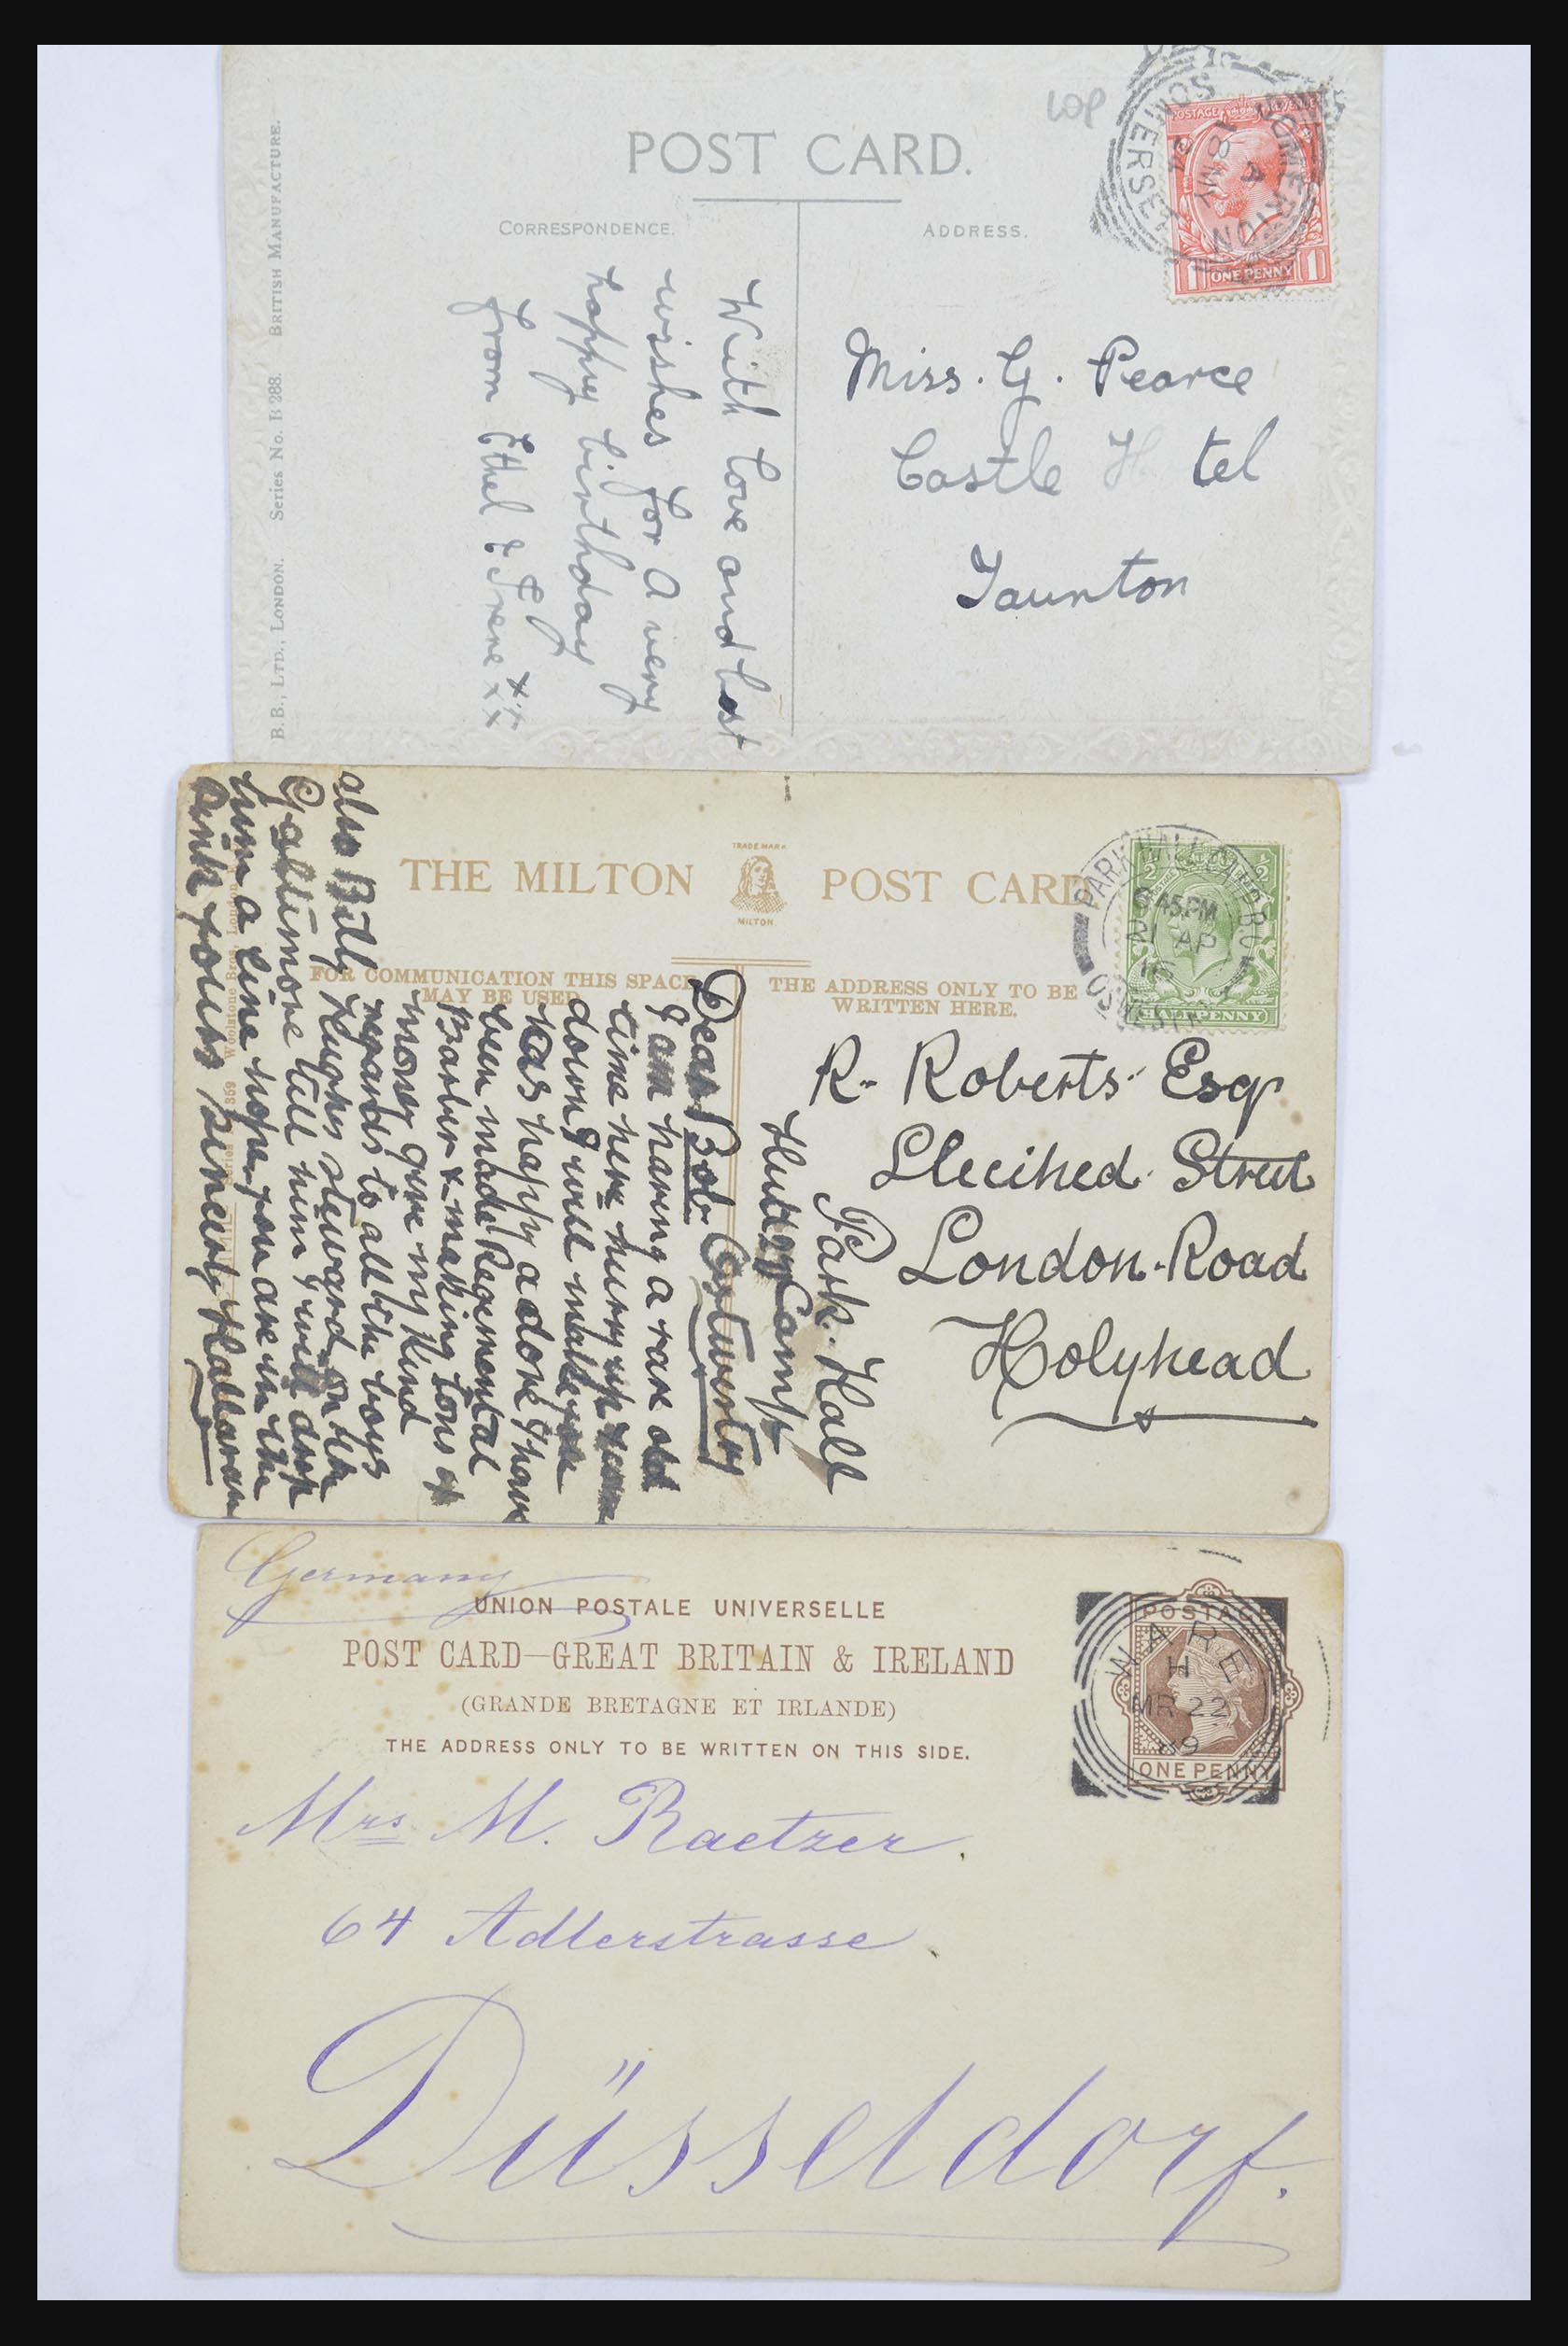 10p
POST CARD.
CORRESPONDENCE.
ADDRESS.
POSTAGE REVENUE
1 ONE PENNY 1
SOMERTON
A
8 MY
24
SOMERSET
B.B., LTD., LONDON. Series No. B 288. BRITISH MANUFACTURE.
With love and best
wishes for a very
happy birthday
from Ethel & Irene
x x x x
Miss. G. Pearce
Castle H tel
Taunton
THE MILTON
TRADE MARK
MILTON
POST CARD
FOR COMMUNICATION THIS SPACE
MAY BE USED
THE ADDRESS ONLY TO BE
WRITTEN HERE.
PARK HALL CAMP
6 45 PM
21 AP
OSWESTRY
HALFPENNY
Woolstone Bros., London
R. Roberts Esq
Llecihed Street
London Road
Holyhead
Park Hall
Camp
Dear Bob Oswestry
I am having a rare old
time here hurry up
down I will make you
has happy a I have
been made Regimental
Barber & making tons of
money give my kind
regards to all the boys
also Billy Hughes steward on the
tell him I will drop
him a line hope you are in the
pink yours sincerely Halloran
Germany
UNION POSTALE UNIVERSELLE
POST CARD—GREAT BRITAIN & IRELAND
(GRANDE BRETAGNE ET IRLANDE)
THE ADDRESS ONLY TO BE WRITTEN ON THIS SIDE.
POSTAGE
ONE PENNY
WARE
H
MR 22
89
Mrs M. Raetzer.
64 Adlerstrasse
Düsseldorf.